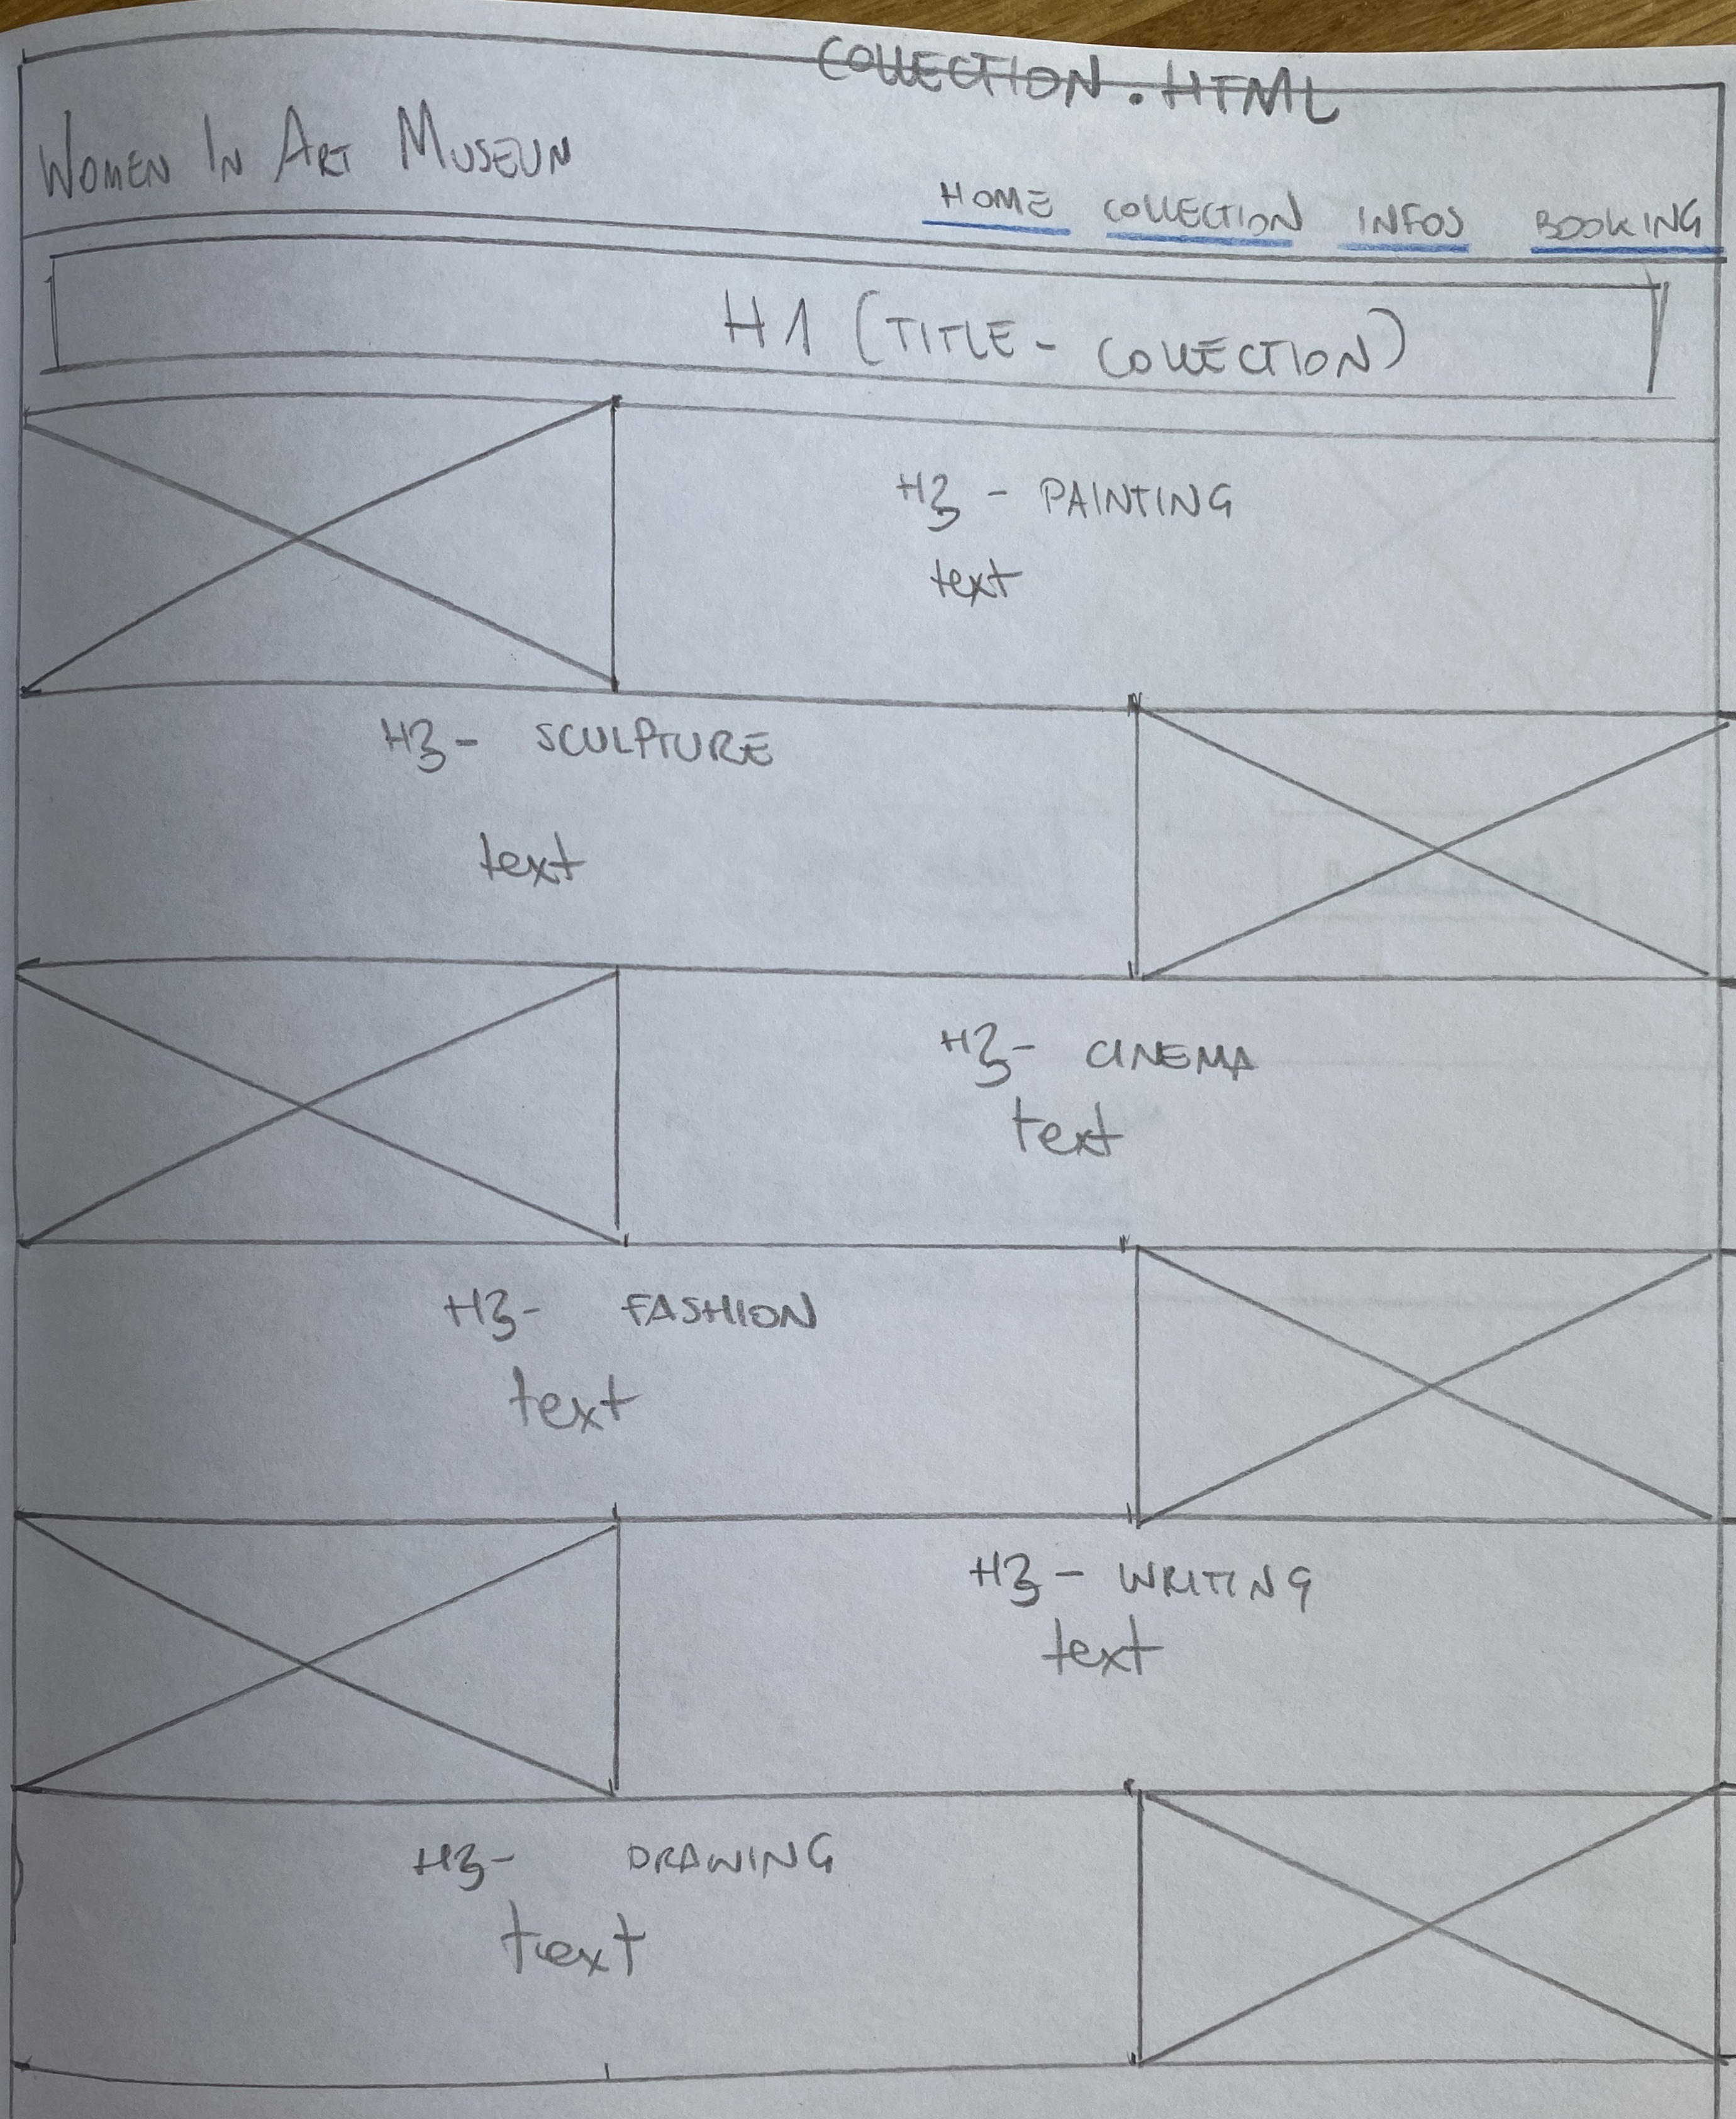 COLLECTION.HTML
WOMEN IN ART MUSEUM
HOME COLLECTION INFOS BOOKING
H1 (TITLE - COLLECTION)
H3 - PAINTING
text
H3 - SCULPTURE
text
H3 - CINEMA
text
H3 - FASHION
text
H3 - WRITING
text
H3 - DRAWING
text